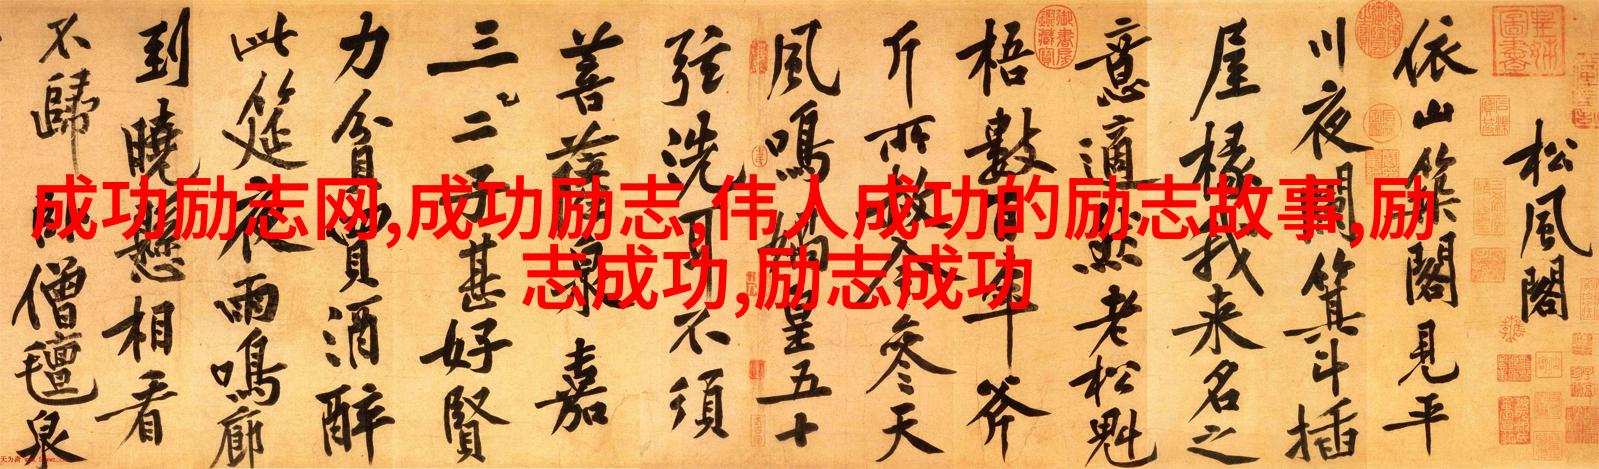 松風閣
依山築閣見平
川夜闌箕斗插
屋椽我来名之
意適然老松魁
梧數百年斧
斤所赦今參天
風鳴媧皇五十
弦洗耳不須
菩薩泉嘉
三二子甚好賢
力貧買酒醉
此筵夜雨鳴廊
到曉懸相看
不歸臥僧氈泉
成功励志网,成功励志,伟人成功的励志故事,励
志成功,励志成功